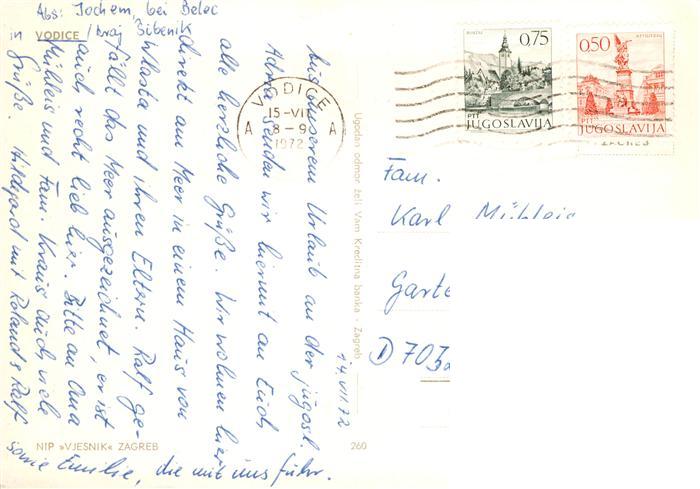 Abs: Jochem, bei Belec
VODICE / kraj Šibenik
14.VII.72
Aus unserem Urlaub an der jugosl.
Adria senden wir hiermit an Euch
alle herzliche Grüße. Wir wohnen hier
direkt am Meer in einem Haus von
Vlasta und ihren Eltern. Ralf ge-
fällt das Meer ausgezeichnet, er ist
auch recht lieb hier. Bitte an Oma
Mühleis und Fam. Kraus auch viele
Grüße. Hildegard mit Roland & Ralf
sowie Emilie, die mit uns fuhr.
NIP »VJESNIK« ZAGREB
260
Ugodan odmor želi Vam Kreditna banka - Zagreb
VODICE
15-VII
A 8-9 A
1972
BOHINJ
0,75
PTT
JUGOSLAVIJA
0,50
PTT
JUGOSLAVIJA
ZAGREB
Fam.
Karl Mühleis
Garte
D 703